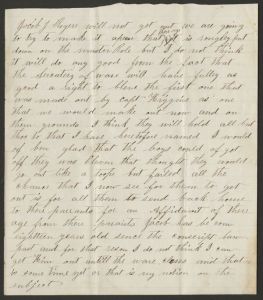 Jacob J Rogers will not get out we are going
to try to made it apear that he is rongly put
down on the muster Role but I do not think
it will do any good from the fact that
the Secretary of ware will have fully as
good a right to bleve the first one that
was made out by Capt Higgins as one
that we would make out now and on
them grounds I think they will hold all but
thos to that I have heretofore named I would
of ben glad that the boys could of got
off they was them that thought they would
go out like a but failed all the
chance that I now see for them to get
out is for all them to send back home
to there parrants for an Affidavit of there
age from there parrants Jacob has be come
eighteen years old sence the conscript law
past and for that reson I do not think I can
get him out untill the ware closes and that
to some time yet or that is my notion on the
subject